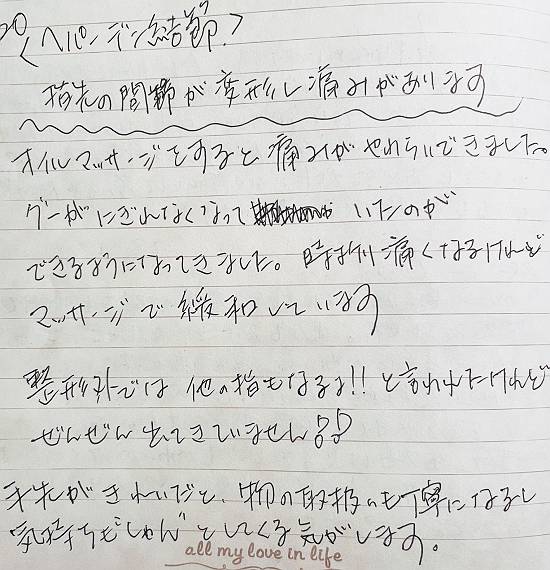 20
<ヘバーデン結節>
指先の間節が変形し痛みがあります
オイルマッサージをすると痛みがやわらいできました。
グーがにぎれなくなって いたのが
できるようになってきました。時折痛くなるけれど
マッサージで緩和しています
整形外では他の指もなるよ!!と言われたけれど
ぜんぜん出てきていません♪♪
手先がきれいだと、物の取扱いも丁寧になるし
気持ちも"しゃん"としてくる気がします。
all my love in life